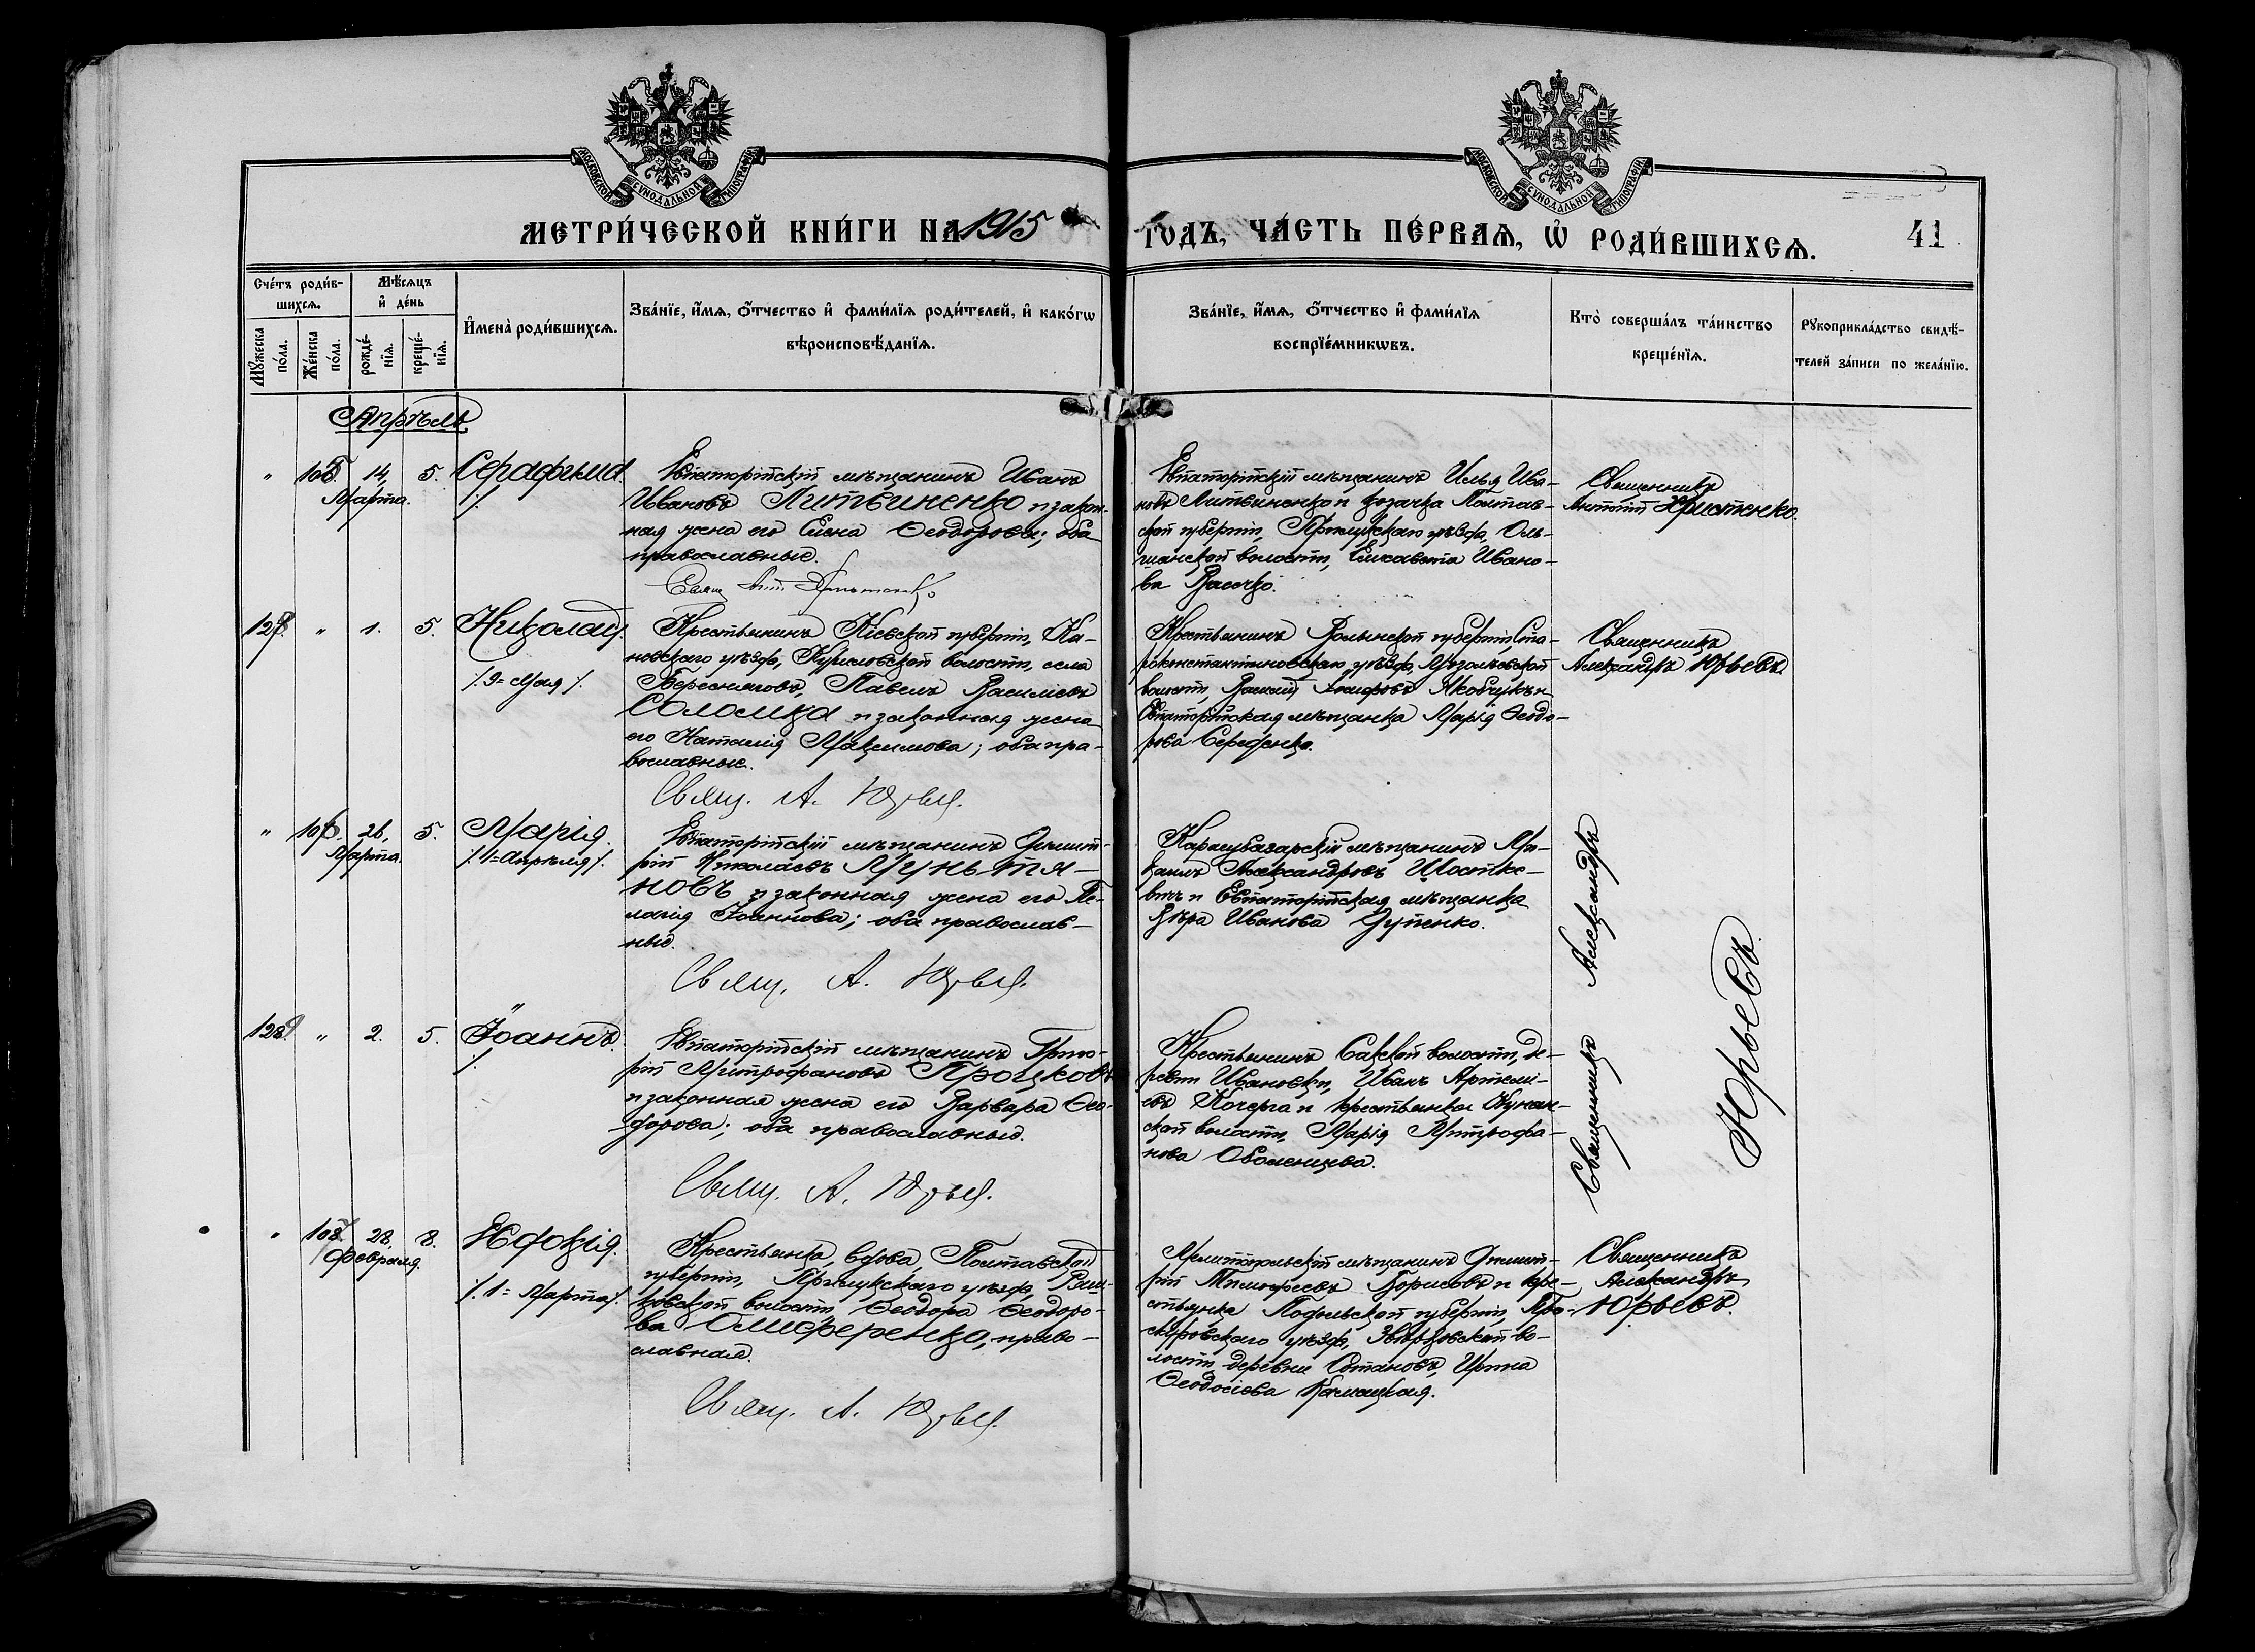 МОСКОВСКОЙ СѴНОДАЛЬНОЙ ТИПОГРАФІИ
МОСКОВСКОЙ СѴНОДАЛЬНОЙ ТИПОГРАФІИ
МЕТРИ́ЧЕСКОЙ КНИ́ГИ НА 1915
ГОДЪ, ЧА́СТЬ ПЕ́РВАѦ, Ѡ҆ РОДИ́ВШИХСѦ.
41
Сче́тъ роди́в-
шихсѧ.
Мꙋ́жеска по́ла.
Же́нска по́ла.
Мѣ́сѧцъ
и҆ де́нь
рожде́-
нїѧ.
креще́-
нїѧ.
И҆мена̀ роди́вшихсѧ.
Зва́нїе, и҆́мѧ, ѻ҆́тчество и҆ фами́лїѧ роди́телей, и҆ како́гѡ
вѣроисповѣ́данїѧ.
Зва́нїе, и҆́мѧ, ѻ҆́тчество и҆ фами́лїѧ
воспрїе́мникѡвъ.
Кто̀ соверша́лъ та́инство
креще́нїѧ.
Рꙋкоприкла́дство свидѣ́-
телей за́писи по жела́нїю.
Апрѣль
" 105. 14, 5. Серафима.
Марта.
Евпаторійскій мѣщанинъ Иванъ
Ивановъ Литвиненко и закон-
ная жена его Елена Ѳеодорова; оба
православные.
Свящ. Ант. Христенко
Евпаторійскій мѣщанинъ Илья Ива-
новъ Литвиненко и козачка Полтав-
ской губерніи, Прилукскаго уѣзда, Оль-
шанской волости, Елисавета Ивано-
ва
Священникъ
Антоній Христенко.
127. " 1. 5. Николай.
/. 9= Мая /.
Крестьянинъ Кіевской губерніи, Ка-
невскаго уѣзда, волости, села
Береснягова, Павелъ Василіевъ
Соломка и законная жена
его Наталія Максимова; оба пра-
вославные.
Свящ. А. Юрьев.
Крестьянинъ Волынской губерніи, Ста-
роконстантиновскаго уѣзда,
волости, Василій Якобчукъ и
Евпаторійская мѣщанка Марія Ѳеодо-
рова Середенко.
Священникъ
Александръ Юрьевъ.
" 106. 26, 5. Марія.
Марта. /. 1= Апрѣля /.
Евпаторійскій мѣщанинъ Димит-
рій Николаевъ Мунь-тя-
новъ и законная жена его Пе-
лагія Іоаннова; оба православ-
ные.
Свящ. А. Юрьев.
Карасубазарскій мѣщанинъ Ми-
хаилъ Александровъ Шостке-
вичъ и Евпаторійская мѣщанка
Вѣра Иванова
128. " 2. 5. Іоаннъ.
/.
Евпаторійскій мѣщанинъ Григо-
рій Митрофановъ Процковъ
и законная жена его Варвара Ѳео-
дорова; оба православные.
Свящ. А. Юрьев.
Крестьянинъ Сакской волости, де-
ревни Ивановки, Иванъ Артемі-
евъ Кочерга и крестьянка
ской волости, Марія Митрофа-
нова Оболенцева.
Священникъ Александръ
Юрьевъ.
" 107. 28, 8. Евдокія.
Февраля. /. 1= Марта /.
Крестьянка, вдова, Полтавской
губерніи, Прилукскаго уѣзда,
волости, Ѳеодора Ѳеодоро-
ва Олиференко, право-
славная.
Свящ. А. Юрьев.
Мелитопольскій мѣщанинъ Димит-
рій Тимофеевъ Борисовъ и кре-
стьянка Подольской губерніи, Про-
скуровскаго уѣзда, во-
лости деревни Ирина
Ѳеодосіева
Священникъ
Александръ
Юрьевъ.